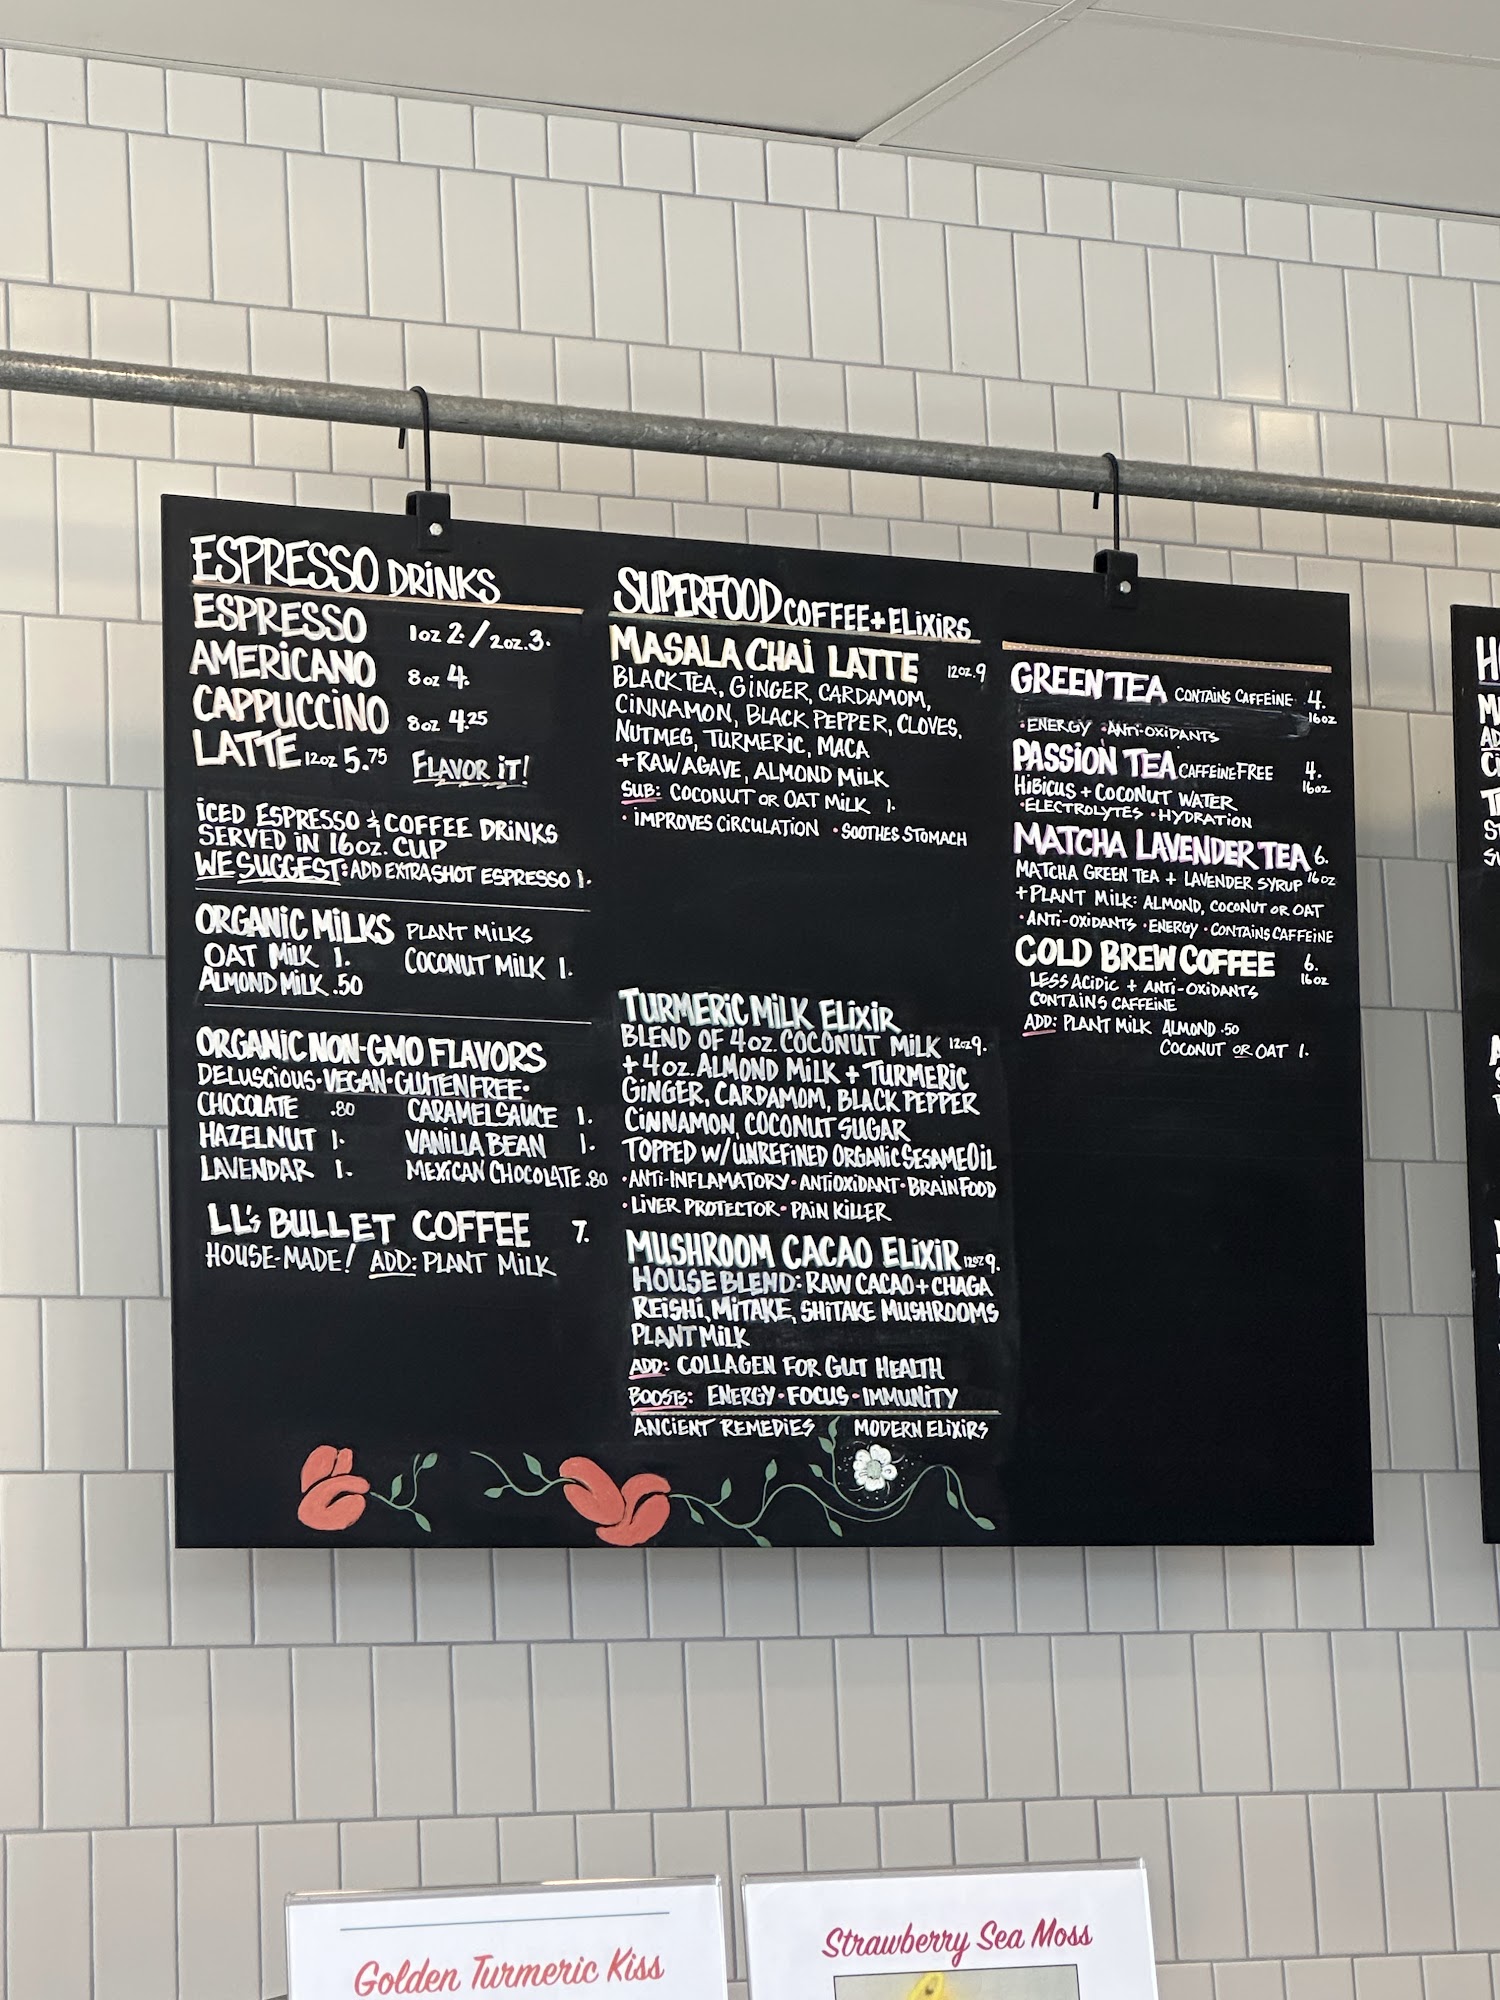 ESPRESSO DRINKS
ESPRESSO 1oz 2. / 2oz. 3.
AMERICANO 8oz 4.
CAPPUCCINO 8oz 4.25
LATTE 12oz 5.75 FLAVOR IT!
ICED ESPRESSO & COFFEE DRINKS
SERVED IN 16oz. CUP
WE SUGGEST: ADD EXTRA SHOT ESPRESSO 1.
ORGANIC MILKS PLANT MILKS
OAT MILK 1. COCONUT MILK 1.
ALMOND MILK .50
ORGANIC NON-GMO FLAVORS
DELUSCIOUS • VEGAN • GLUTEN FREE •
CHOCOLATE .80 CARAMEL SAUCE 1.
HAZELNUT 1. VANILLA BEAN 1.
LAVENDAR 1. MEXICAN CHOCOLATE .80
LL's BULLET COFFEE 7.
HOUSE-MADE! ADD: PLANT MILK
SUPERFOOD COFFEE + ELIXIRS
MASALA CHAI LATTE 12oz. 9
BLACK TEA, GINGER, CARDAMOM,
CINNAMON, BLACK PEPPER, CLOVES,
NUTMEG, TURMERIC, MACA
+ RAW AGAVE, ALMOND MILK
SUB: COCONUT OR OAT MILK 1.
• IMPROVES CIRCULATION • SOOTHES STOMACH
TURMERIC MILK ELIXIR
BLEND OF 4oz. COCONUT MILK 12oz 9.
+ 4oz. ALMOND MILK + TURMERIC
GINGER, CARDAMOM, BLACK PEPPER
CINNAMON, COCONUT SUGAR
TOPPED W/ UNREFINED ORGANIC SESAME OIL
• ANTI-INFLAMATORY • ANTIOXIDANT • BRAIN FOOD
• LIVER PROTECTOR • PAIN KILLER
MUSHROOM CACAO ELIXIR 12oz 9.
HOUSE BLEND: RAW CACAO + CHAGA
REISHI, MITAKE, SHITAKE MUSHROOMS
PLANT MILK
ADD: COLLAGEN FOR GUT HEALTH
BOOSTS: ENERGY • FOCUS • IMMUNITY
ANCIENT REMEDIES MODERN ELIXIRS
GREEN TEA CONTAINS CAFFEINE 4.
16oz
• ENERGY • ANTI-OXIDANTS
PASSION TEA CAFFEINE FREE 4.
16oz
HIBICUS + COCONUT WATER
• ELECTROLYTES • HYDRATION
MATCHA LAVENDER TEA 6.
MATCHA GREEN TEA + LAVENDER SYRUP 16oz
+ PLANT MILK: ALMOND, COCONUT OR OAT
• ANTI-OXIDANTS • ENERGY • CONTAINS CAFFEINE
COLD BREW COFFEE 6.
16oz
LESS ACIDIC + ANTI-OXIDANTS
CONTAINS CAFFEINE
ADD: PLANT MILK ALMOND .50
COCONUT OR OAT 1.
Golden Turmeric Kiss
Strawberry Sea Moss